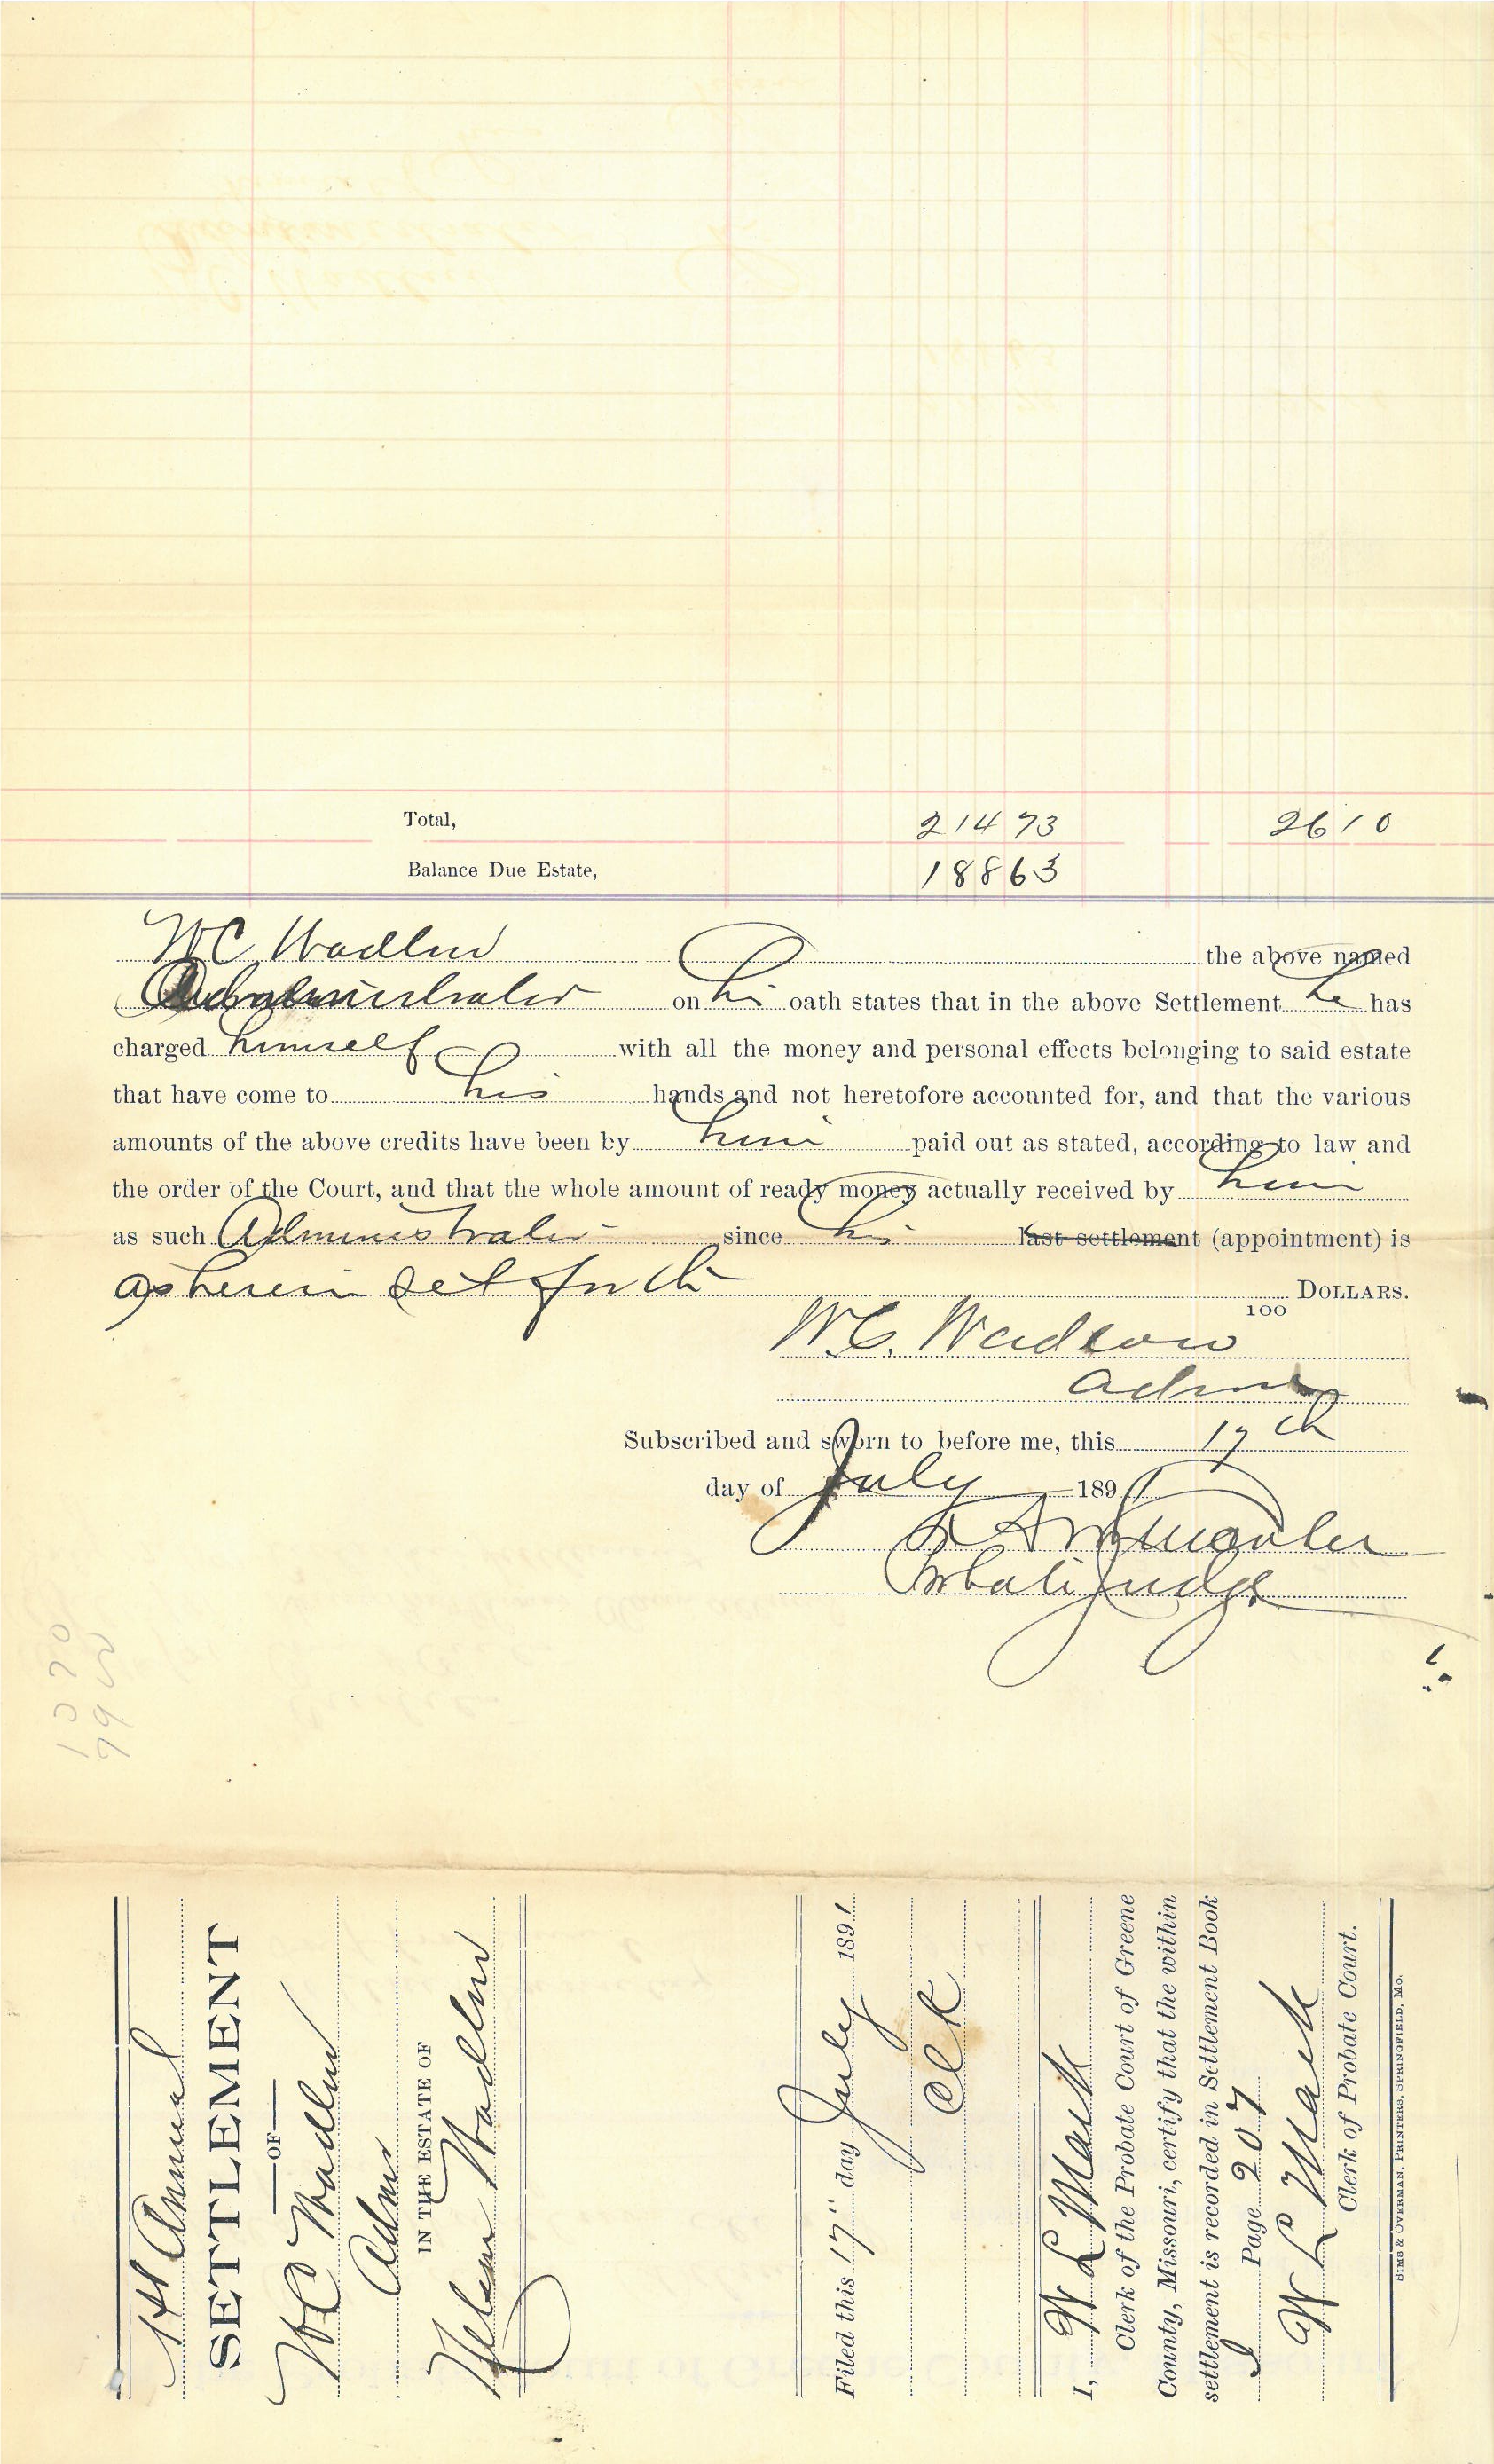 Total, 214 73 26 10
Balance Due Estate, 188 63
W C Wadlow the above named
Administrator on his oath states that in the above Settlement he has
charged himself with all the money and personal effects belonging to said estate
that have come to his hands and not heretofore accounted for, and that the various
amounts of the above credits have been by him paid out as stated, according to law and
the order of the Court, and that the whole amount of ready money actually received by him
as such Administrator since his last settlement (appointment) is
as herein set forth DOLLARS.
100
W.C. Wadlow
Admr
Subscribed and sworn to before me, this 17th
day of July 1891
Probate Judge
1st Annual
SETTLEMENT
OF
W C Wadlow
Admr
IN THE ESTATE OF
Wadlow
Filed this 17" day July 1891
Clk
I, W L Mack
Clerk of the Probate Court of Greene
County, Missouri, certify that the within
settlement is recorded in Settlement Book
I Page 207
W L Mack
Clerk of Probate Court.
SIMS & OVERMAN, PRINTERS, SPRINGFIELD, MO.